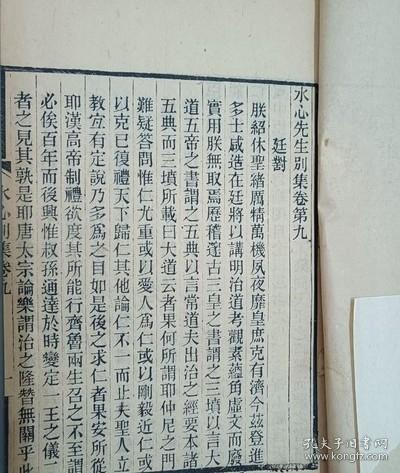 水心先生別集卷第九
廷對
朕紹休聖緒厲精萬機夙夜靡皇庶克有濟今茲登進
多士咸造在廷將以講明治道考觀素蘊角虛文而廢
實用朕無取焉歷稽邃古三皇之書謂之三墳以言大
道五帝之書謂之五典以言常道夫出治之經要本諸
五典而三墳所載曰大道云者果何所謂耶仲尼之門
難疑答問惟仁尤重或以愛人為仁或以剛毅近仁或
以克己復禮天下歸仁其他論仁不一而止夫聖人立
教宜有定說乃多為之目如是後之求仁者果安所從
耶漢高帝制禮欲度其所能行齊魯兩生召之不至謂
必俟百年而後興惟叔孫通達於時變定一王之儀二
者之見其孰是耶唐太宗論樂謂治之隆替無關乎此
水心別集卷九
一
孔夫子旧书网